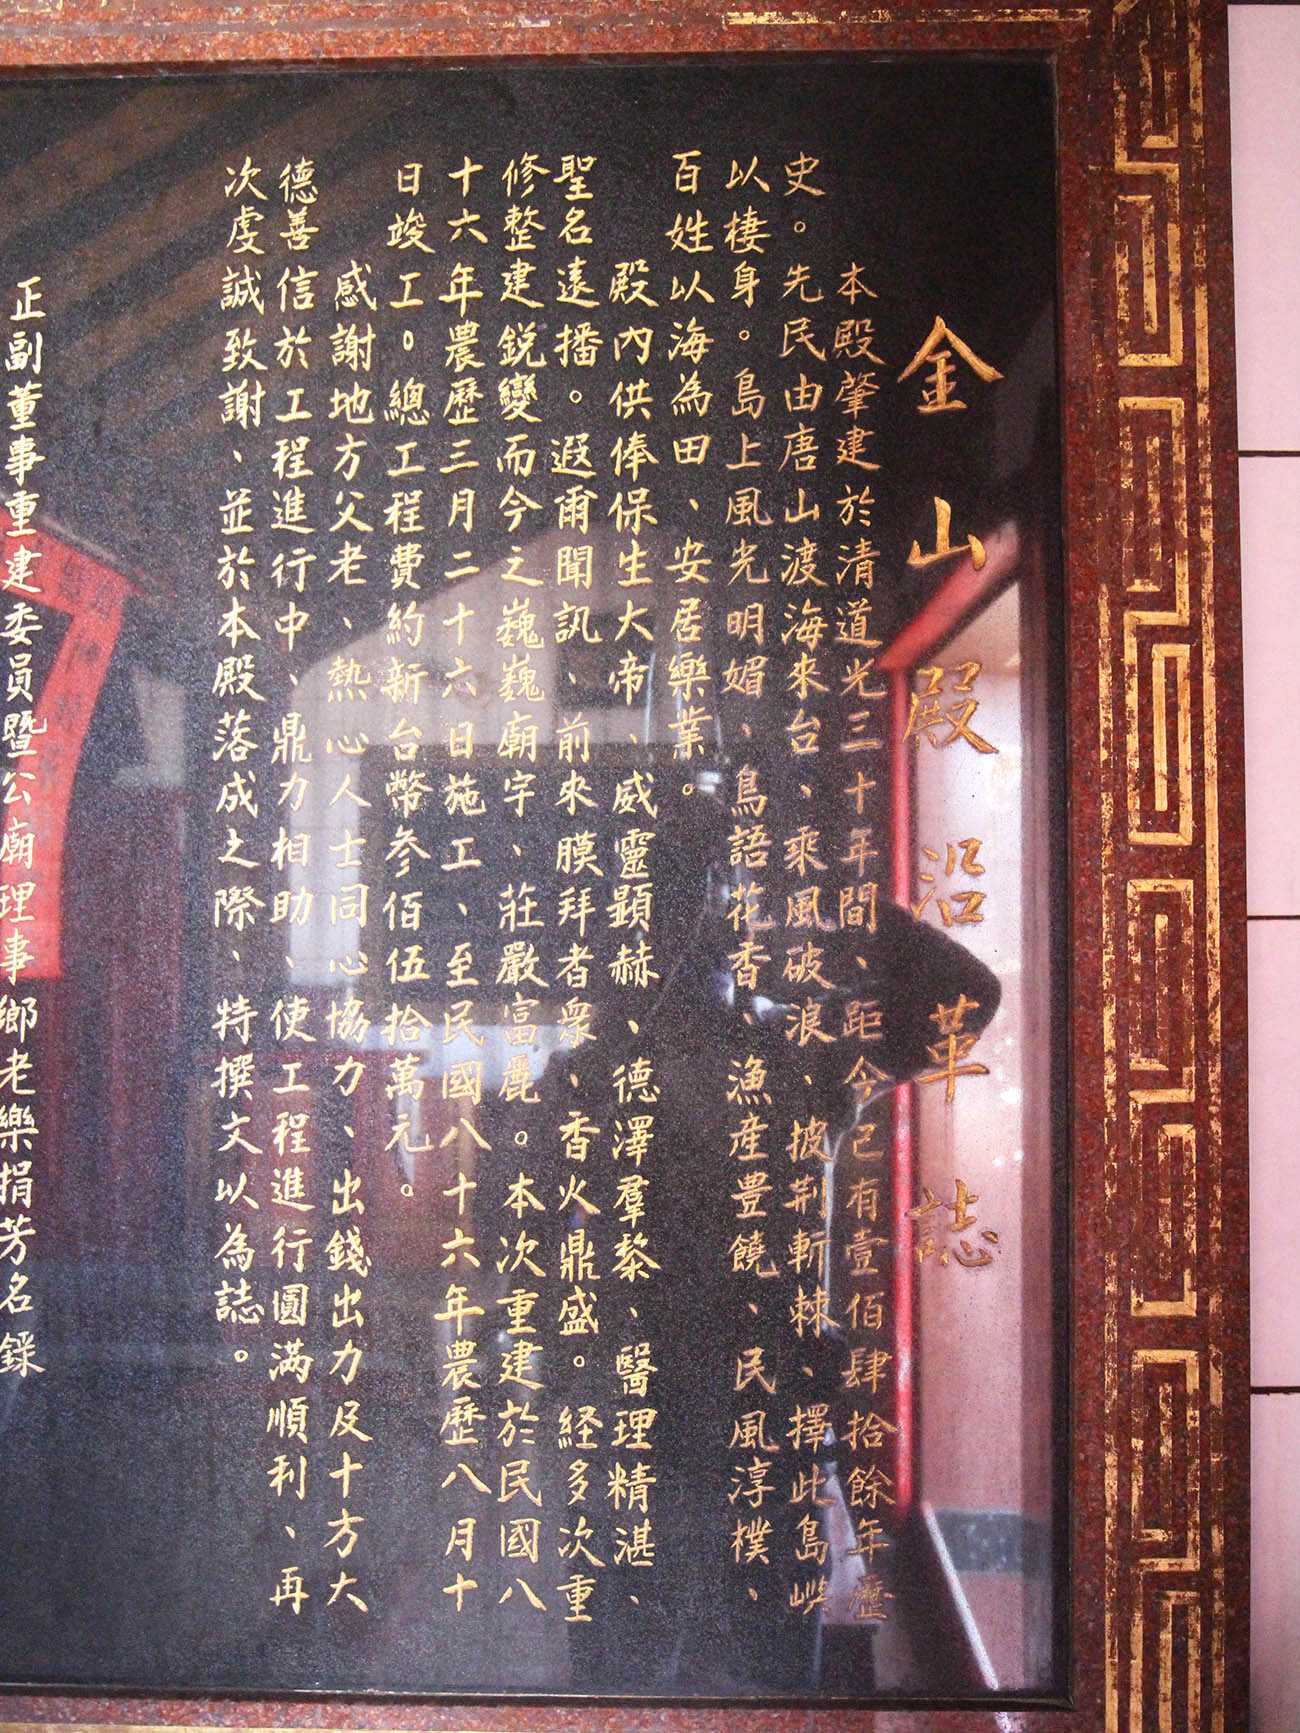 金山殿沿革誌
本殿肇建於清道光三十年間、距今已有壹佰肆拾餘年歷
史。先民由唐山渡海來台、乘風破浪、披荆斬棘、擇此島嶼
以棲身。島上風光明媚、鳥語花香、漁產豊饒、民風淳樸、
百姓以海為田、安居樂業。
殿内供俸保生大帝、威靈顯赫、德澤羣黎、醫理精湛、
聖名遠播。遐爾聞訊、前來膜拜者衆、香火鼎盛。経多次重
修整建鋭變而今之巍巍廟宇、莊嚴富麗。本次重建於民國八
十六年農歷三月二十六日施工、至民國八十六年農歷八月十
日竣工。總工程費約新台幣参佰伍拾萬元。
感謝地方父老、熱心人士同心協力、出錢出力及十方大
德善信於工程進行中、鼎力相助、使工程進行圓滿順利、再
次虔誠致謝、並於本殿落成之際、特撰文以為誌。
正副董事重建委員暨公廟理事鄉老樂捐芳名錄